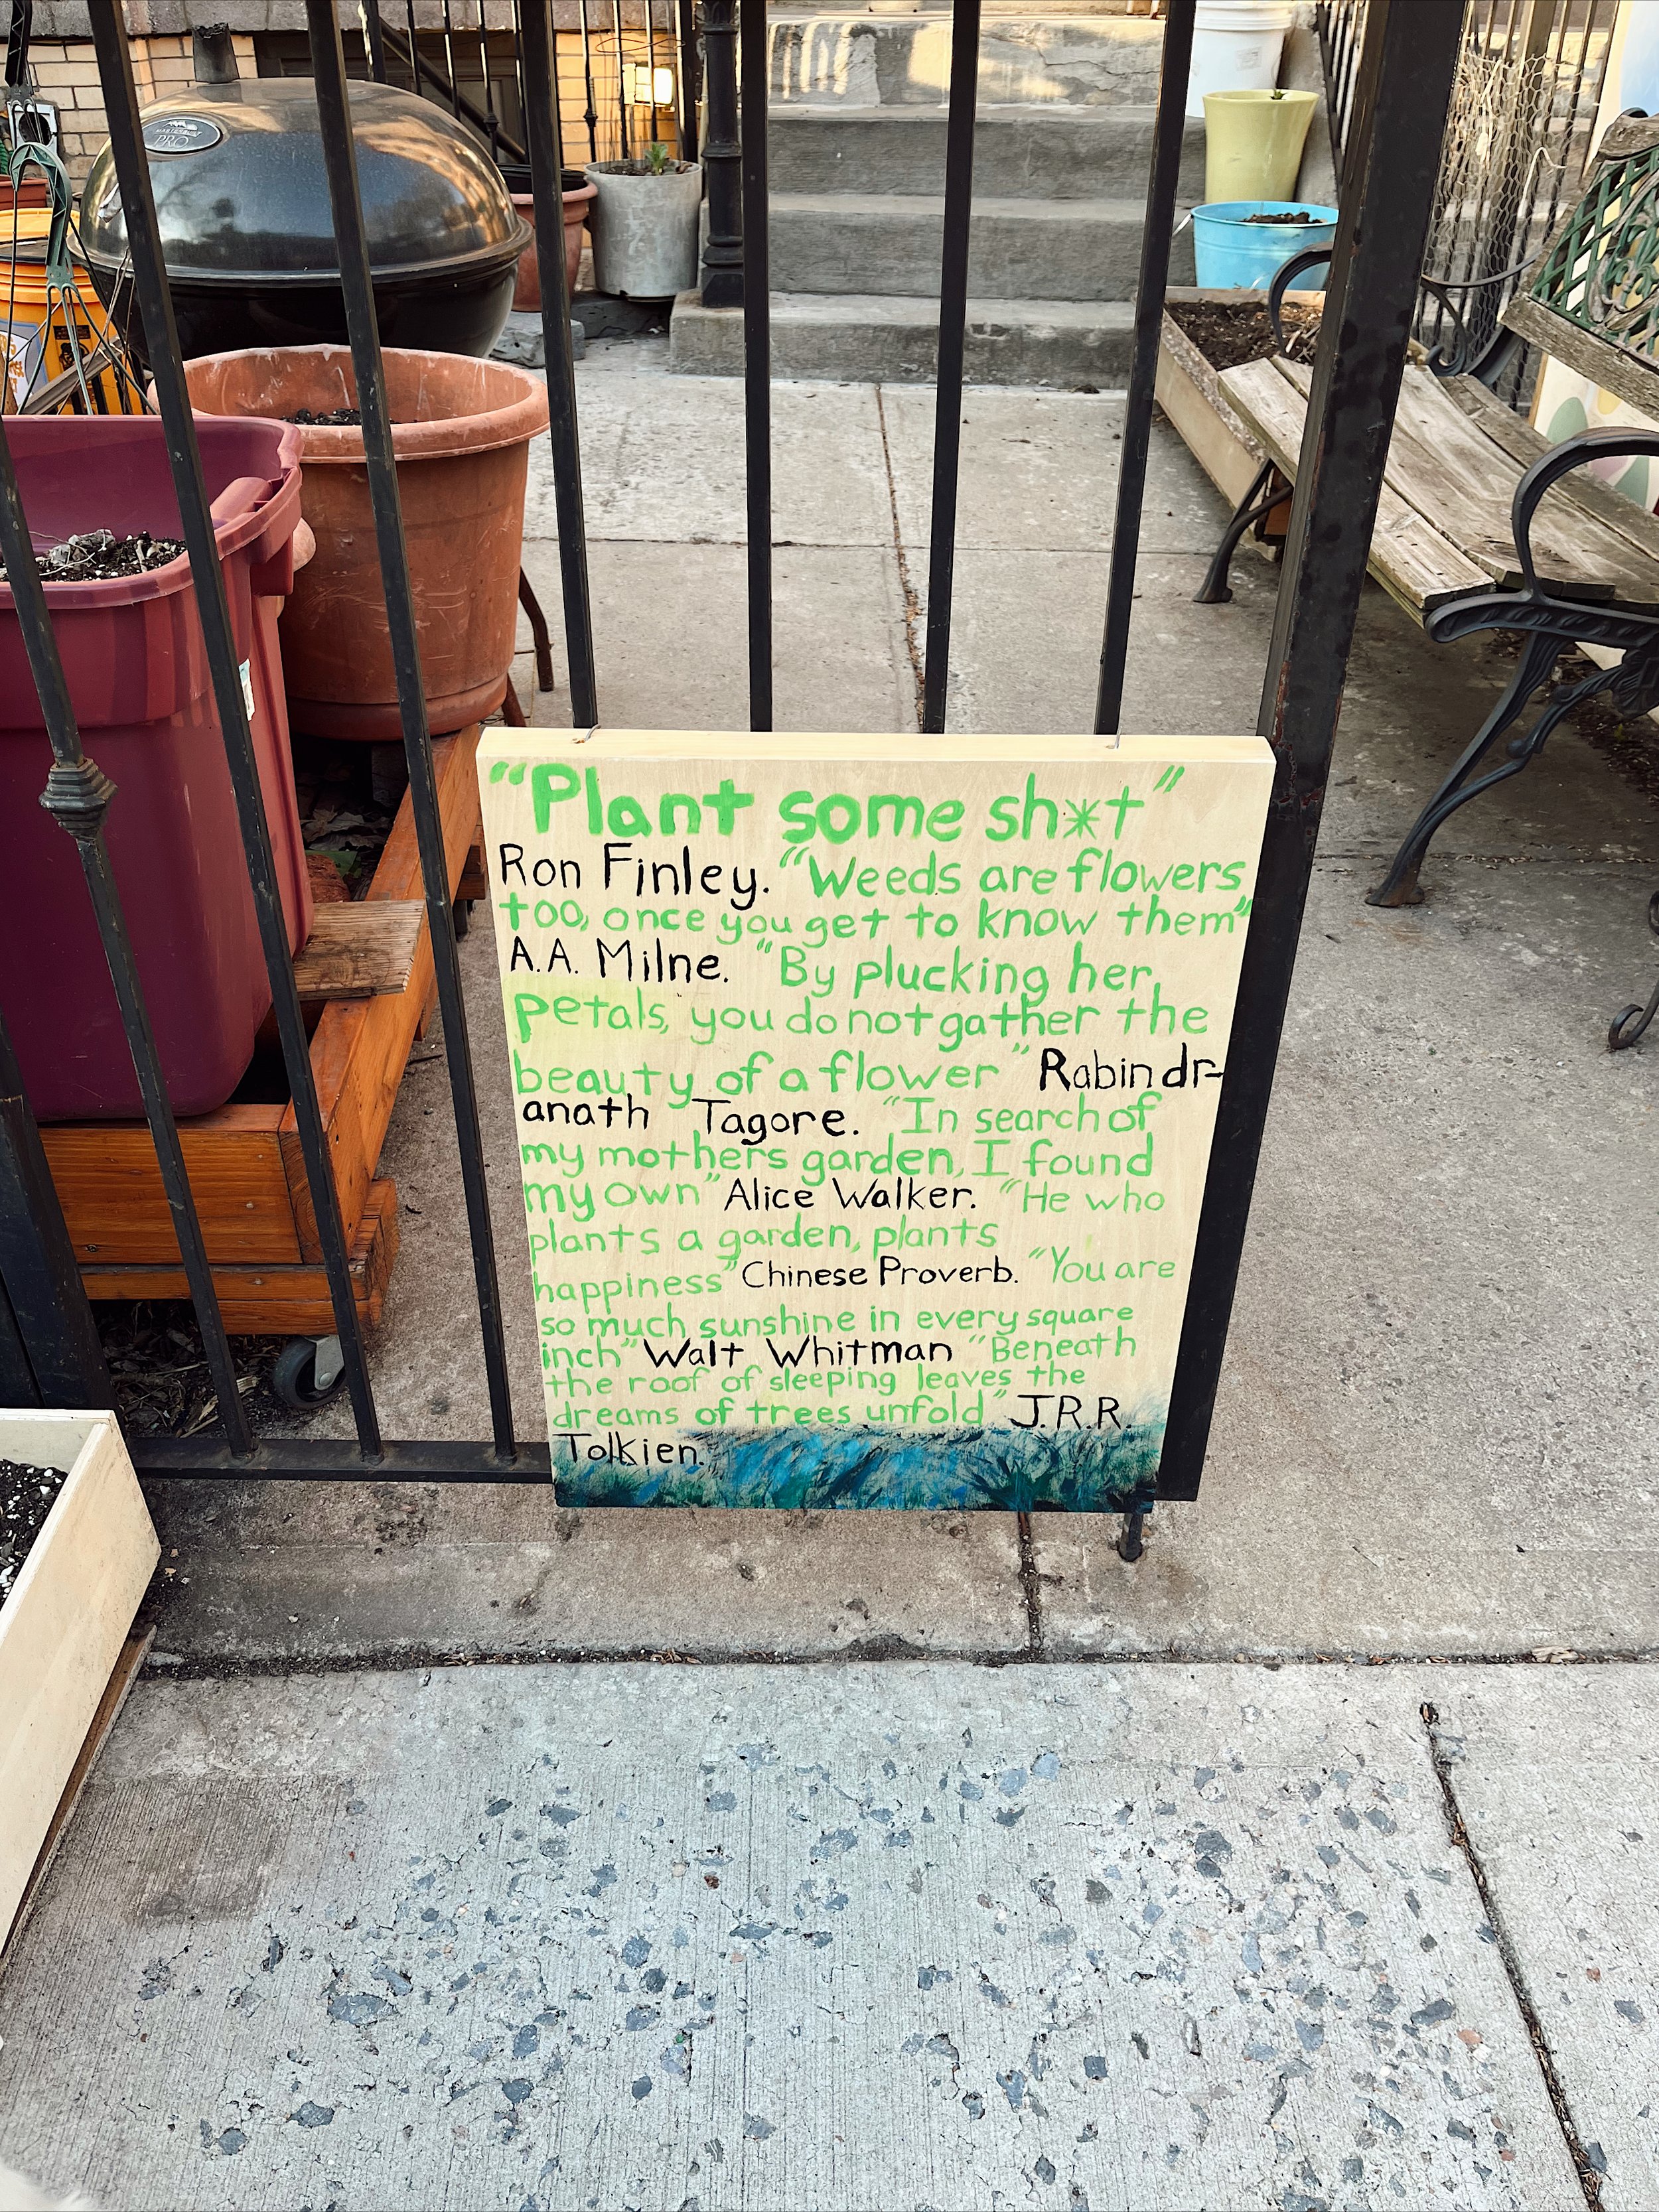 PRO
"Plant some sh*t"
Ron Finley. "Weeds are flowers
too, once you get to know them"
A.A. Milne. "By plucking her
petals, you do not gather the
beauty of a flower" Rabindr-
anath Tagore. "In search of
my mothers garden, I found
my own" Alice Walker. "He who
plants a garden, plants
happiness" Chinese Proverb. "You are
so much sunshine in every square
inch" Walt Whitman "Beneath
the roof of sleeping leaves the
dreams of trees unfold" J.R.R.
Tolkien.